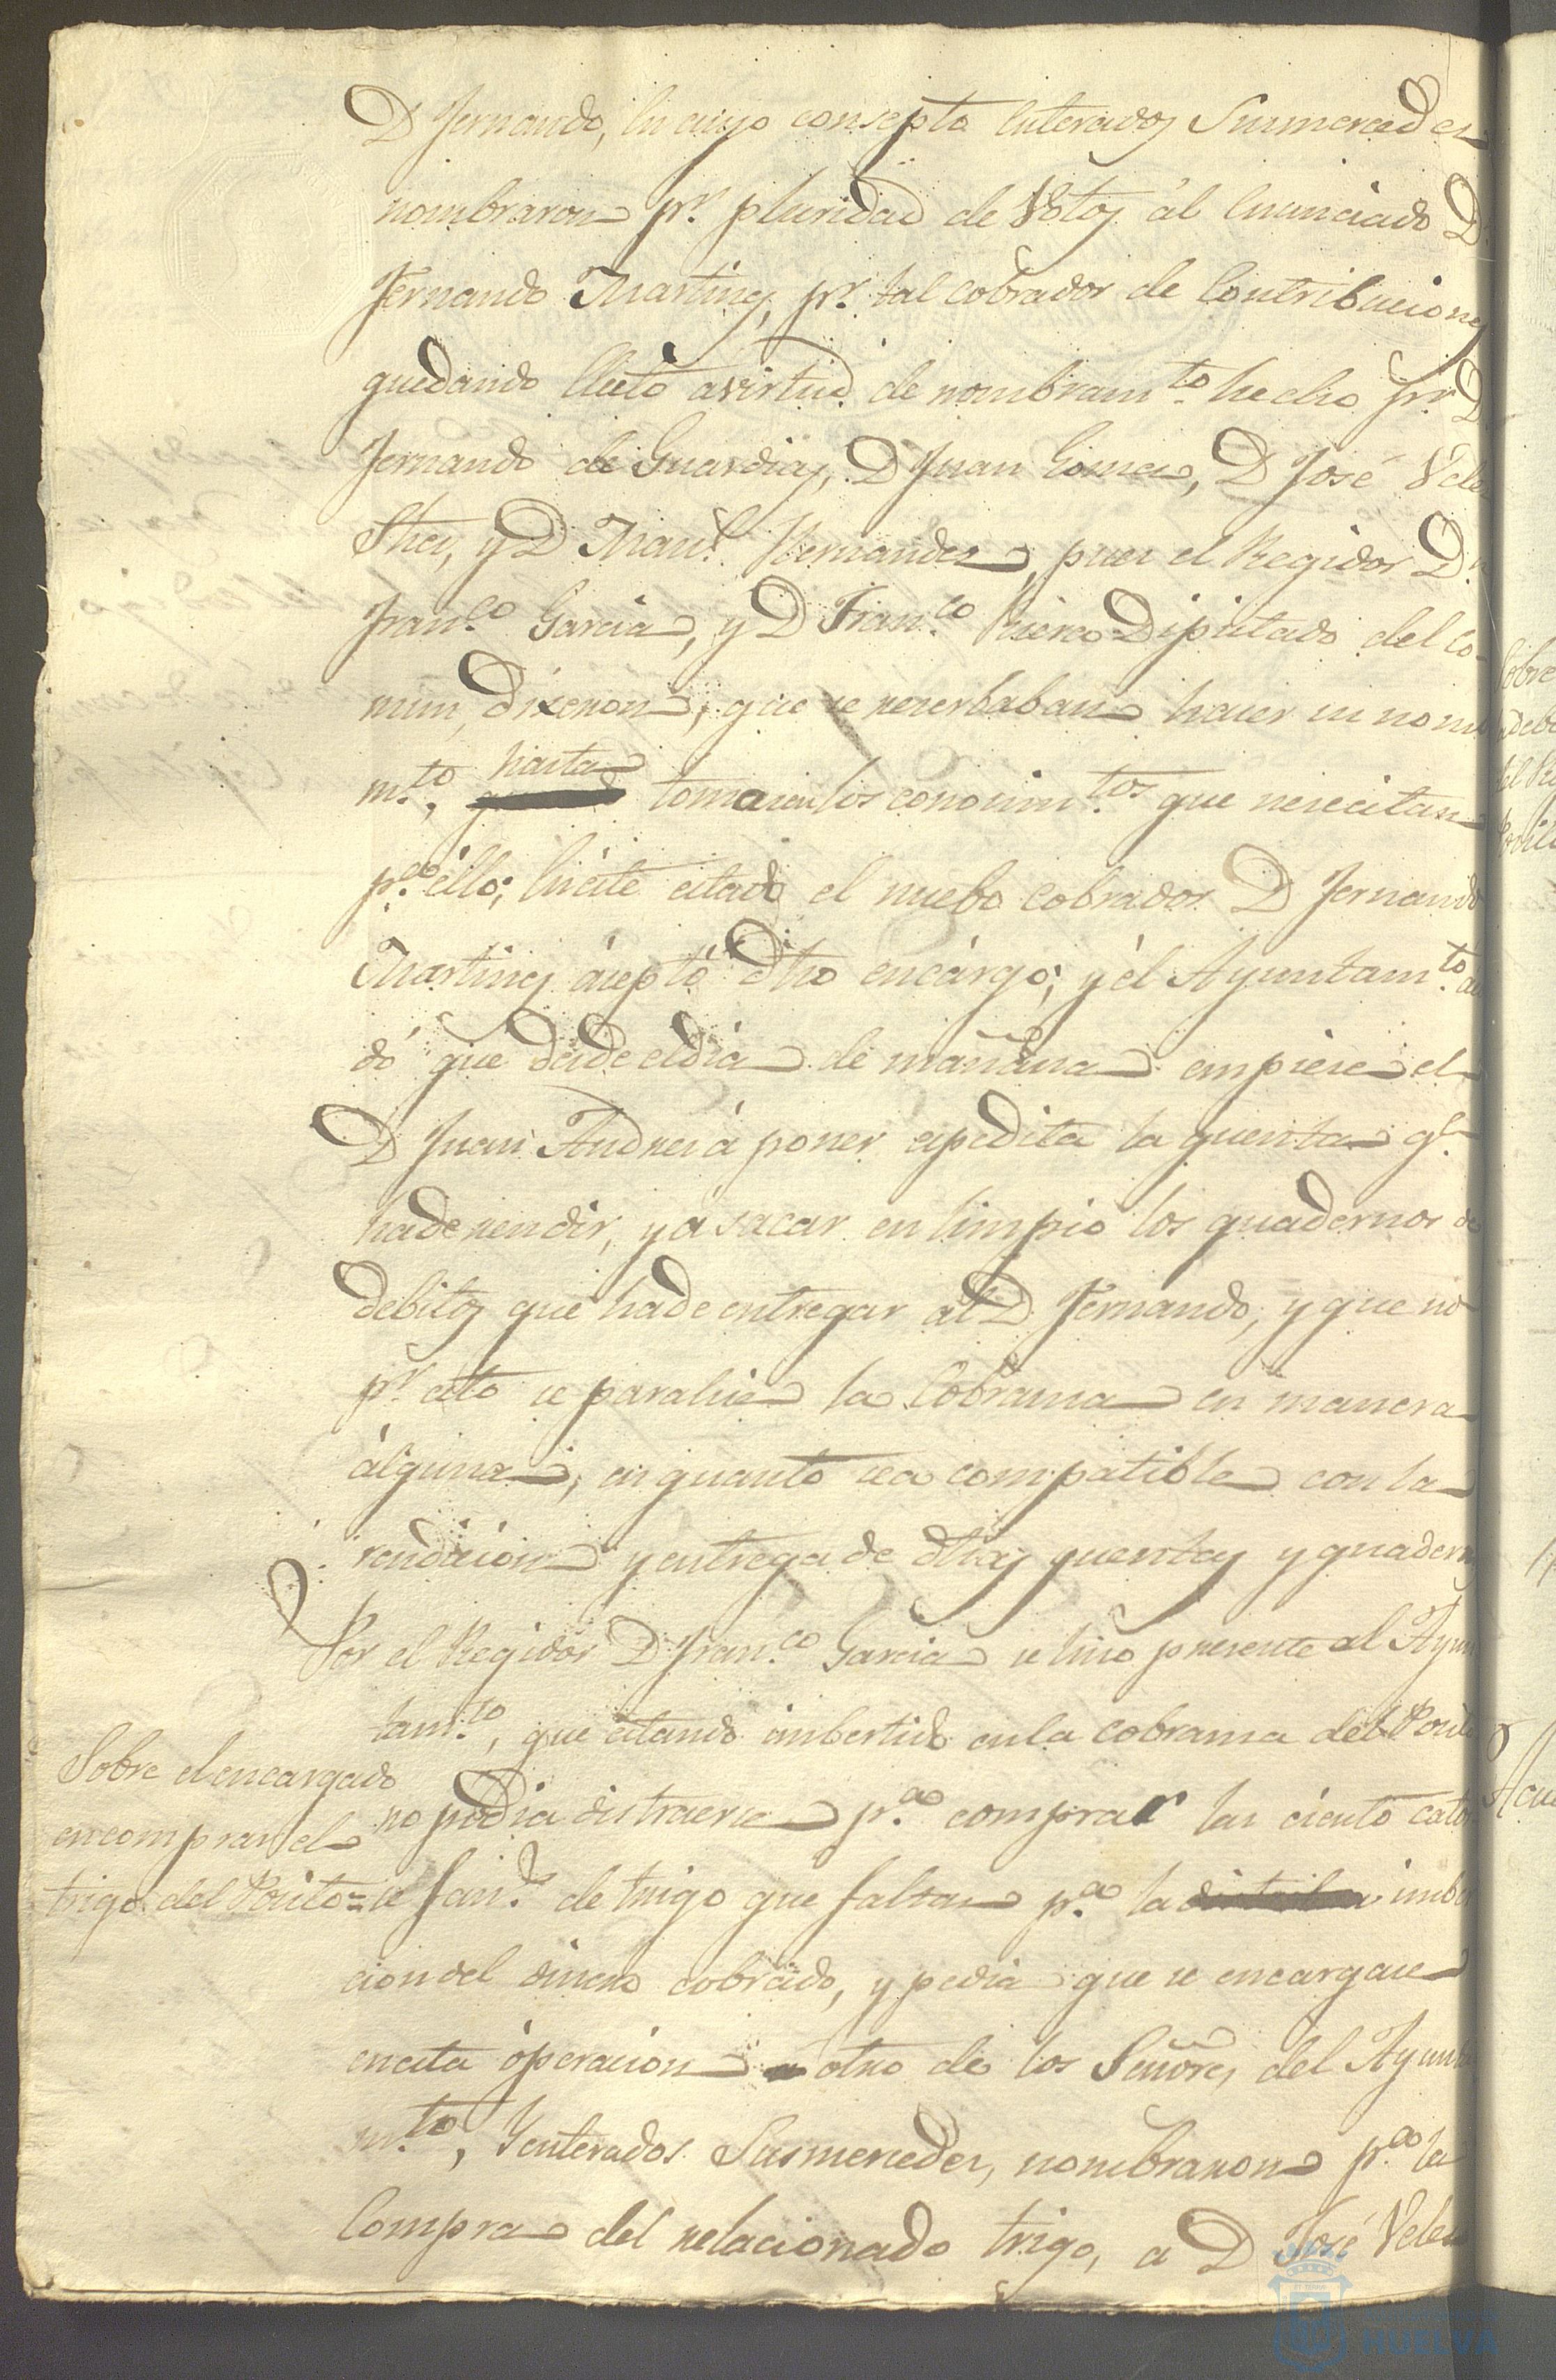 D Fernando, en cuyo consepto enterados Susmercedes
nombraron pr. pluridad de Votos al enunciado D.
Fernando Martines, pr. tal cobrador de Contribuciones
quedando electo a virtud de nombramto. hecho pr. D.
Fernando de Guardias, D Juan Gomes, D José Veles
y D Manl. Hernandes, pues el Regidor D.n
Franco. Garcia, y D Franco. Diputado del Co-
mun, dixeron, que se reserbaban hacer su nom
mto., hasta tomasen los conosimtos. que nesecitan
pa. éllo; en este estado el nuebo cobrador D Fernando
Martines áceptó dho encárgo; y él Ayuntamto. a
dó que desde el dia de mañana empiese el
D Juan Andres á poner espedita la quenta qe.
ha de rendir, y á sacar en limpio los quadernos de
debitos que ha de entregar al D. Fernando, y que no
pr. esto se paralise la Cobransa en manera
álguna, en quanto sea compatible con la
rendision y entrega de dhas quentas y quadern
Por el Regidor D Franco. Garcia se hiso presente al Ayun
tamto., que estando imbertido en la cobransa del Posito
no podia distraerse pa. comprar las ciento cator
se fans. de trigo que faltan pa. la imber
cion del dinero cobrado, y pedia que se encargase
en esta óperacion a otro de los Señores del Ayunta
mto., Y enterados Susmercedes, nombraron pa. la
Compra del relacionado trigo, a D José Veles
Sobre el encargado
en comprar el
trigo del Posito=
HUELVA